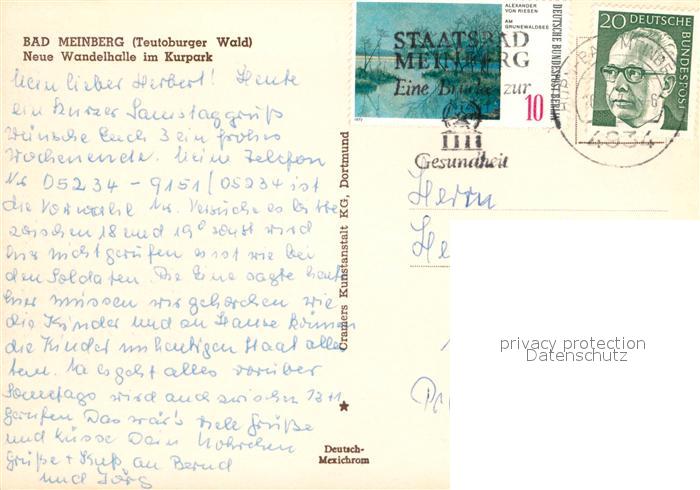 BAD MEINBERG (Teutoburger Wald)
Neue Wandelhalle im Kurpark
Mein lieber Herbert! Heute
ein kurzer Samstaggruß
wünsche Euch 3 ein frohes
Wochenende. Meine Telefon
Nr 05234 - 9151/05234 ist
die Vorwahl Nr. Versuche es bitte
zwischen 18 und 19⁰ sonst wird
hier nicht gerufen es ist wie bei
den Soldaten. Die Eine sagte heute
hier müssen wir gehorchen wie
die Kinder und zu Hause können
die Kinder im heutigen Staat alle
. Na es geht alles vorüber
Sonntags wird auch zwischen
gerufen Das wär's viele Grüße
und Küsse Dein
Grüße + Kuß an Bernd
und Jörg
Cramers Kunstanstalt KG, Dortmund
Deutsch-
Mexichrom
ALEXANDER
VON RIESEN
AM
GRUNEWALDSEE
DEUTSCHE BUNDESPOST BERLIN
10
1972
20 DEUTSCHE
BUNDESPOST
STAATSBAD
MEINBERG
Eine Brücke zur
Gesundheit
BAD MEINB
4934
Herrn
He
privacy protection
Datenschutz